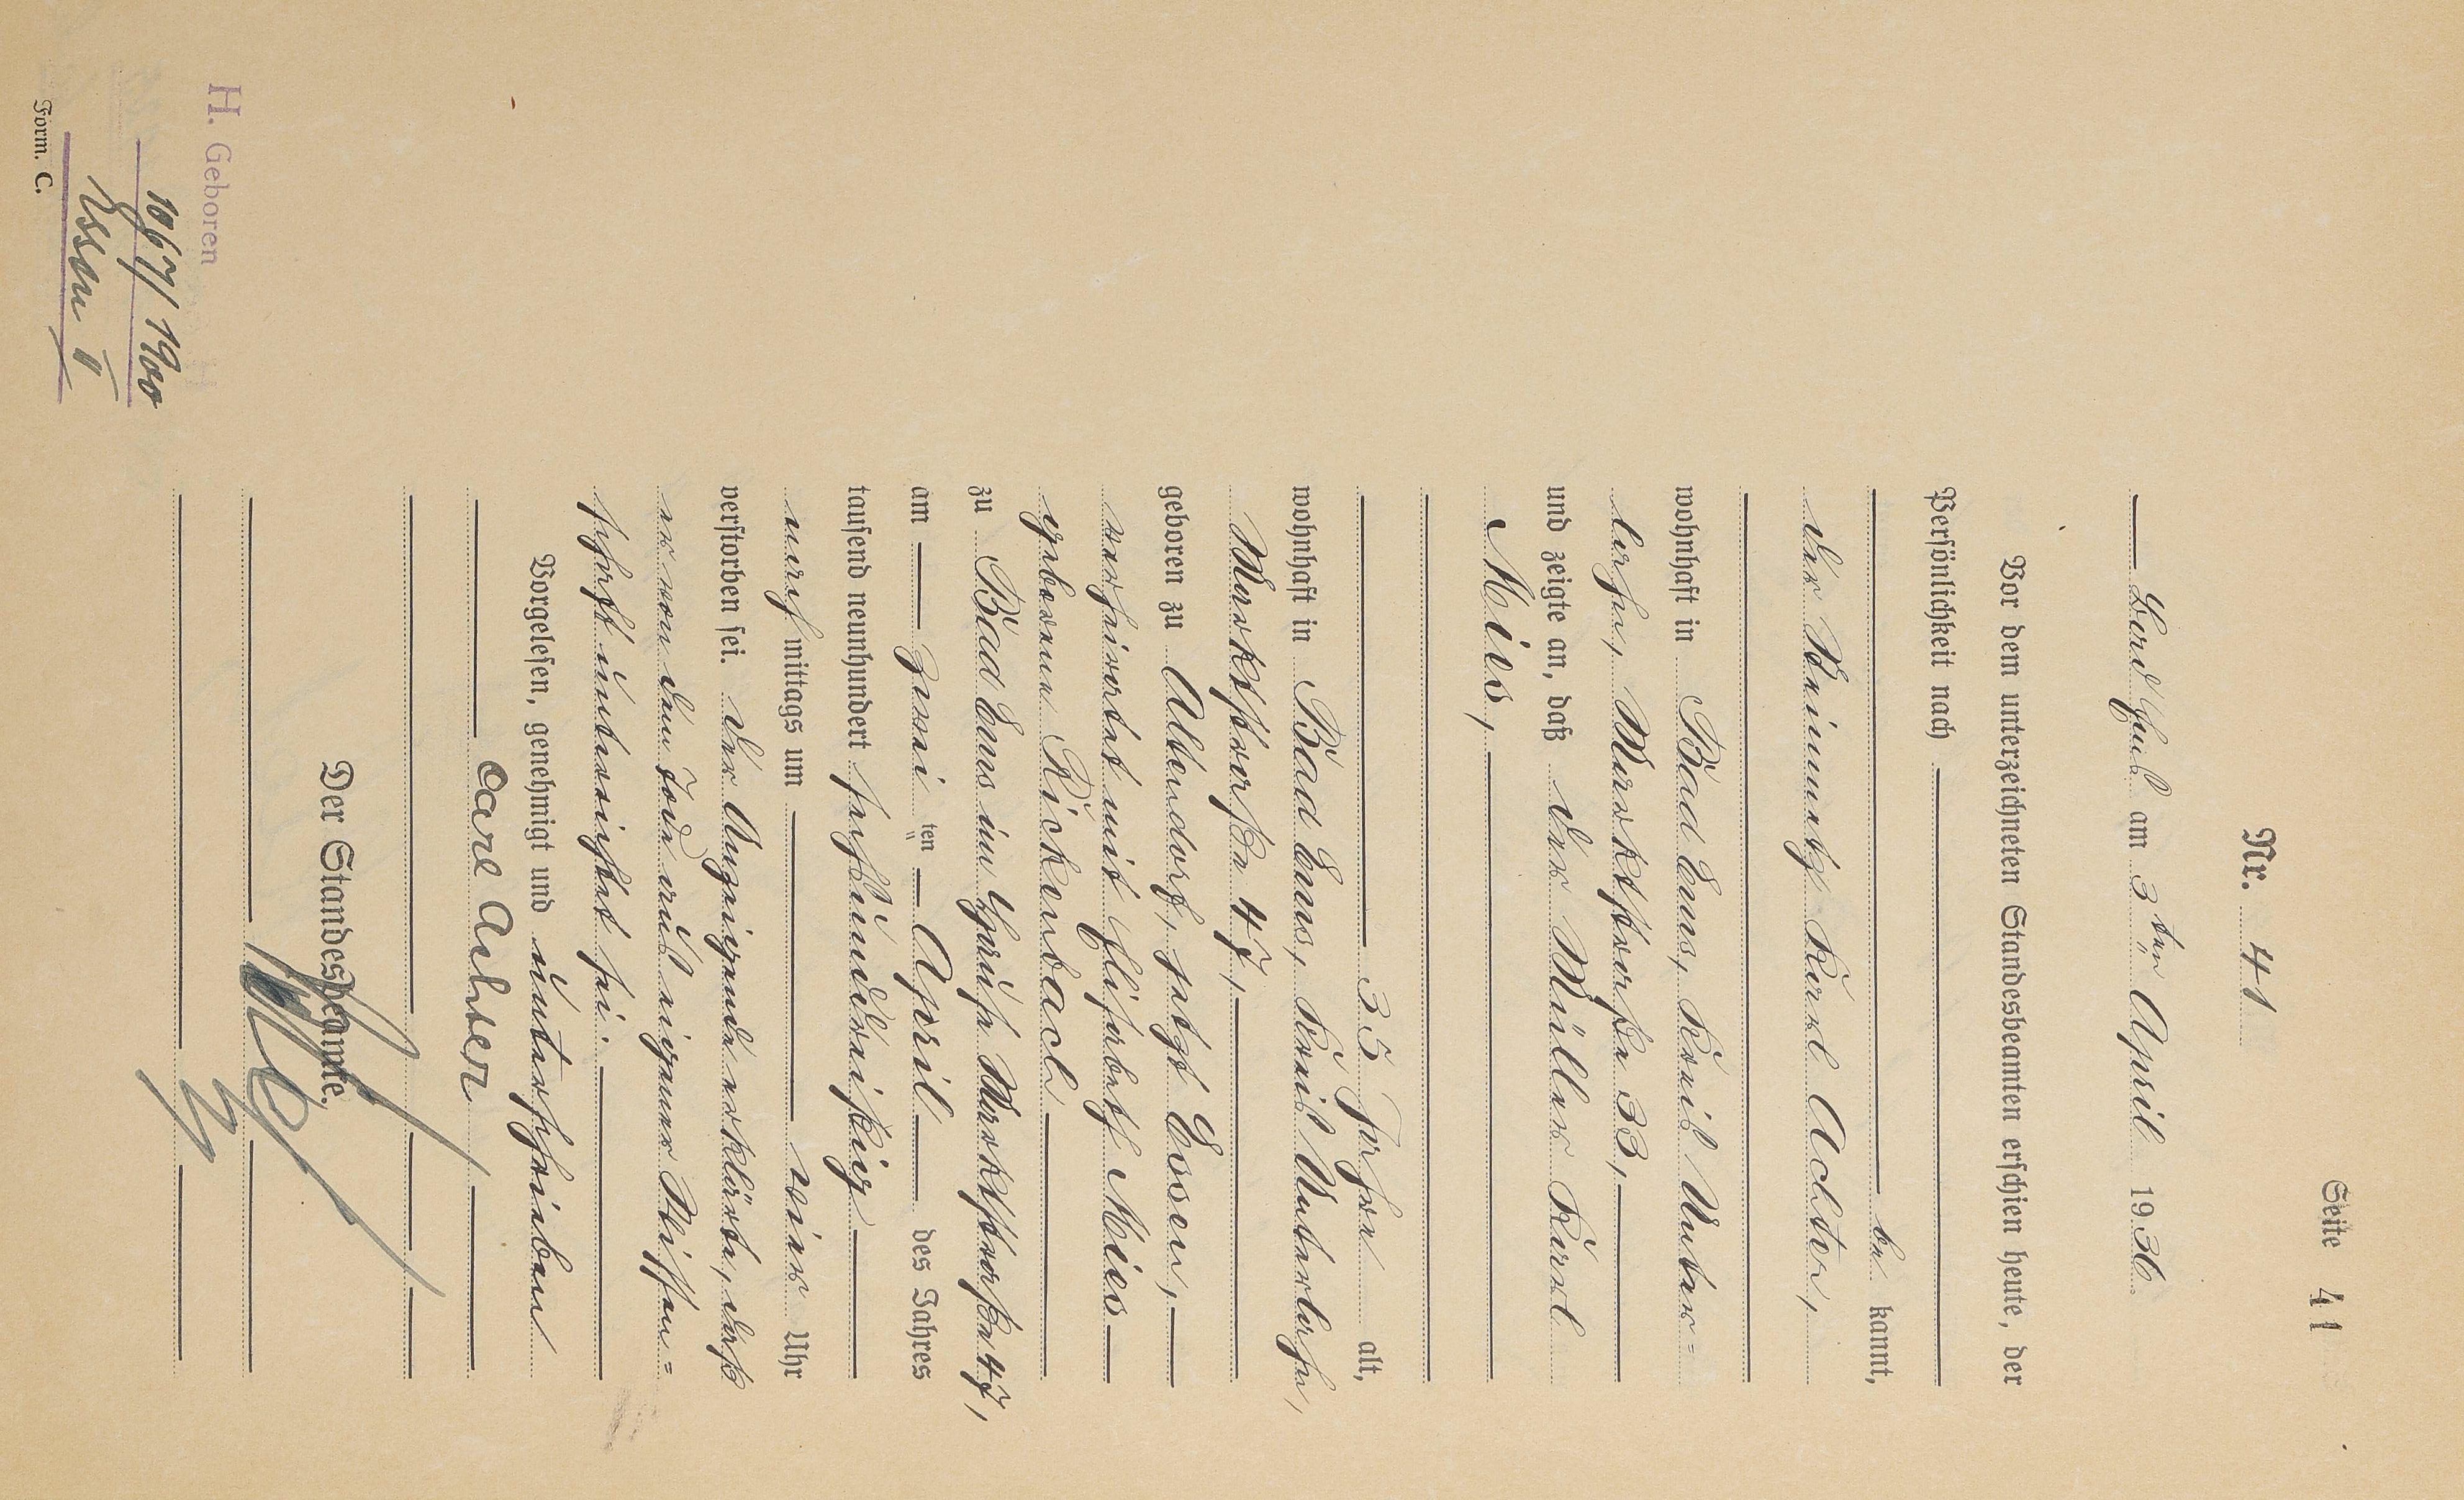 Seite 41
Nr. 41
Bad Ems am 3ten April 1936
Vor dem unterzeichneten Standesbeamten erschien heute, der
Persönlichkeit nach
be kannt,
der Karl Achter,
wohnhaft in Bad Ems, Kreis Unter=
lahn, Marktstraße 33,
und zeigte an, daß der Müller Karl
Mies,
35 Jahre alt,
wohnhaft in Bad Ems, Kreis Unterlahn,
Marktstraße 47,
geboren zu Altendorf, jetzt Essen,
verheiratet mit Elisabeth Mies
geborene Rickenbach
zu Bad Ems im Hause Marktstraße 47,
am zwei ten April des Jahres
tausend neunhundert sechsunddreißig
nach mittags um vier Uhr
verstorben sei. Der Anzeigende erklärte, daß
er von dem Tode aus eigener Wissen=
schaft unterrichtet sei.
Vorgelesen, genehmigt und unterschrieben
Carl Achter
Der Standesbeamte.
H. Geboren
1067/1900
Essen I
Form. C.